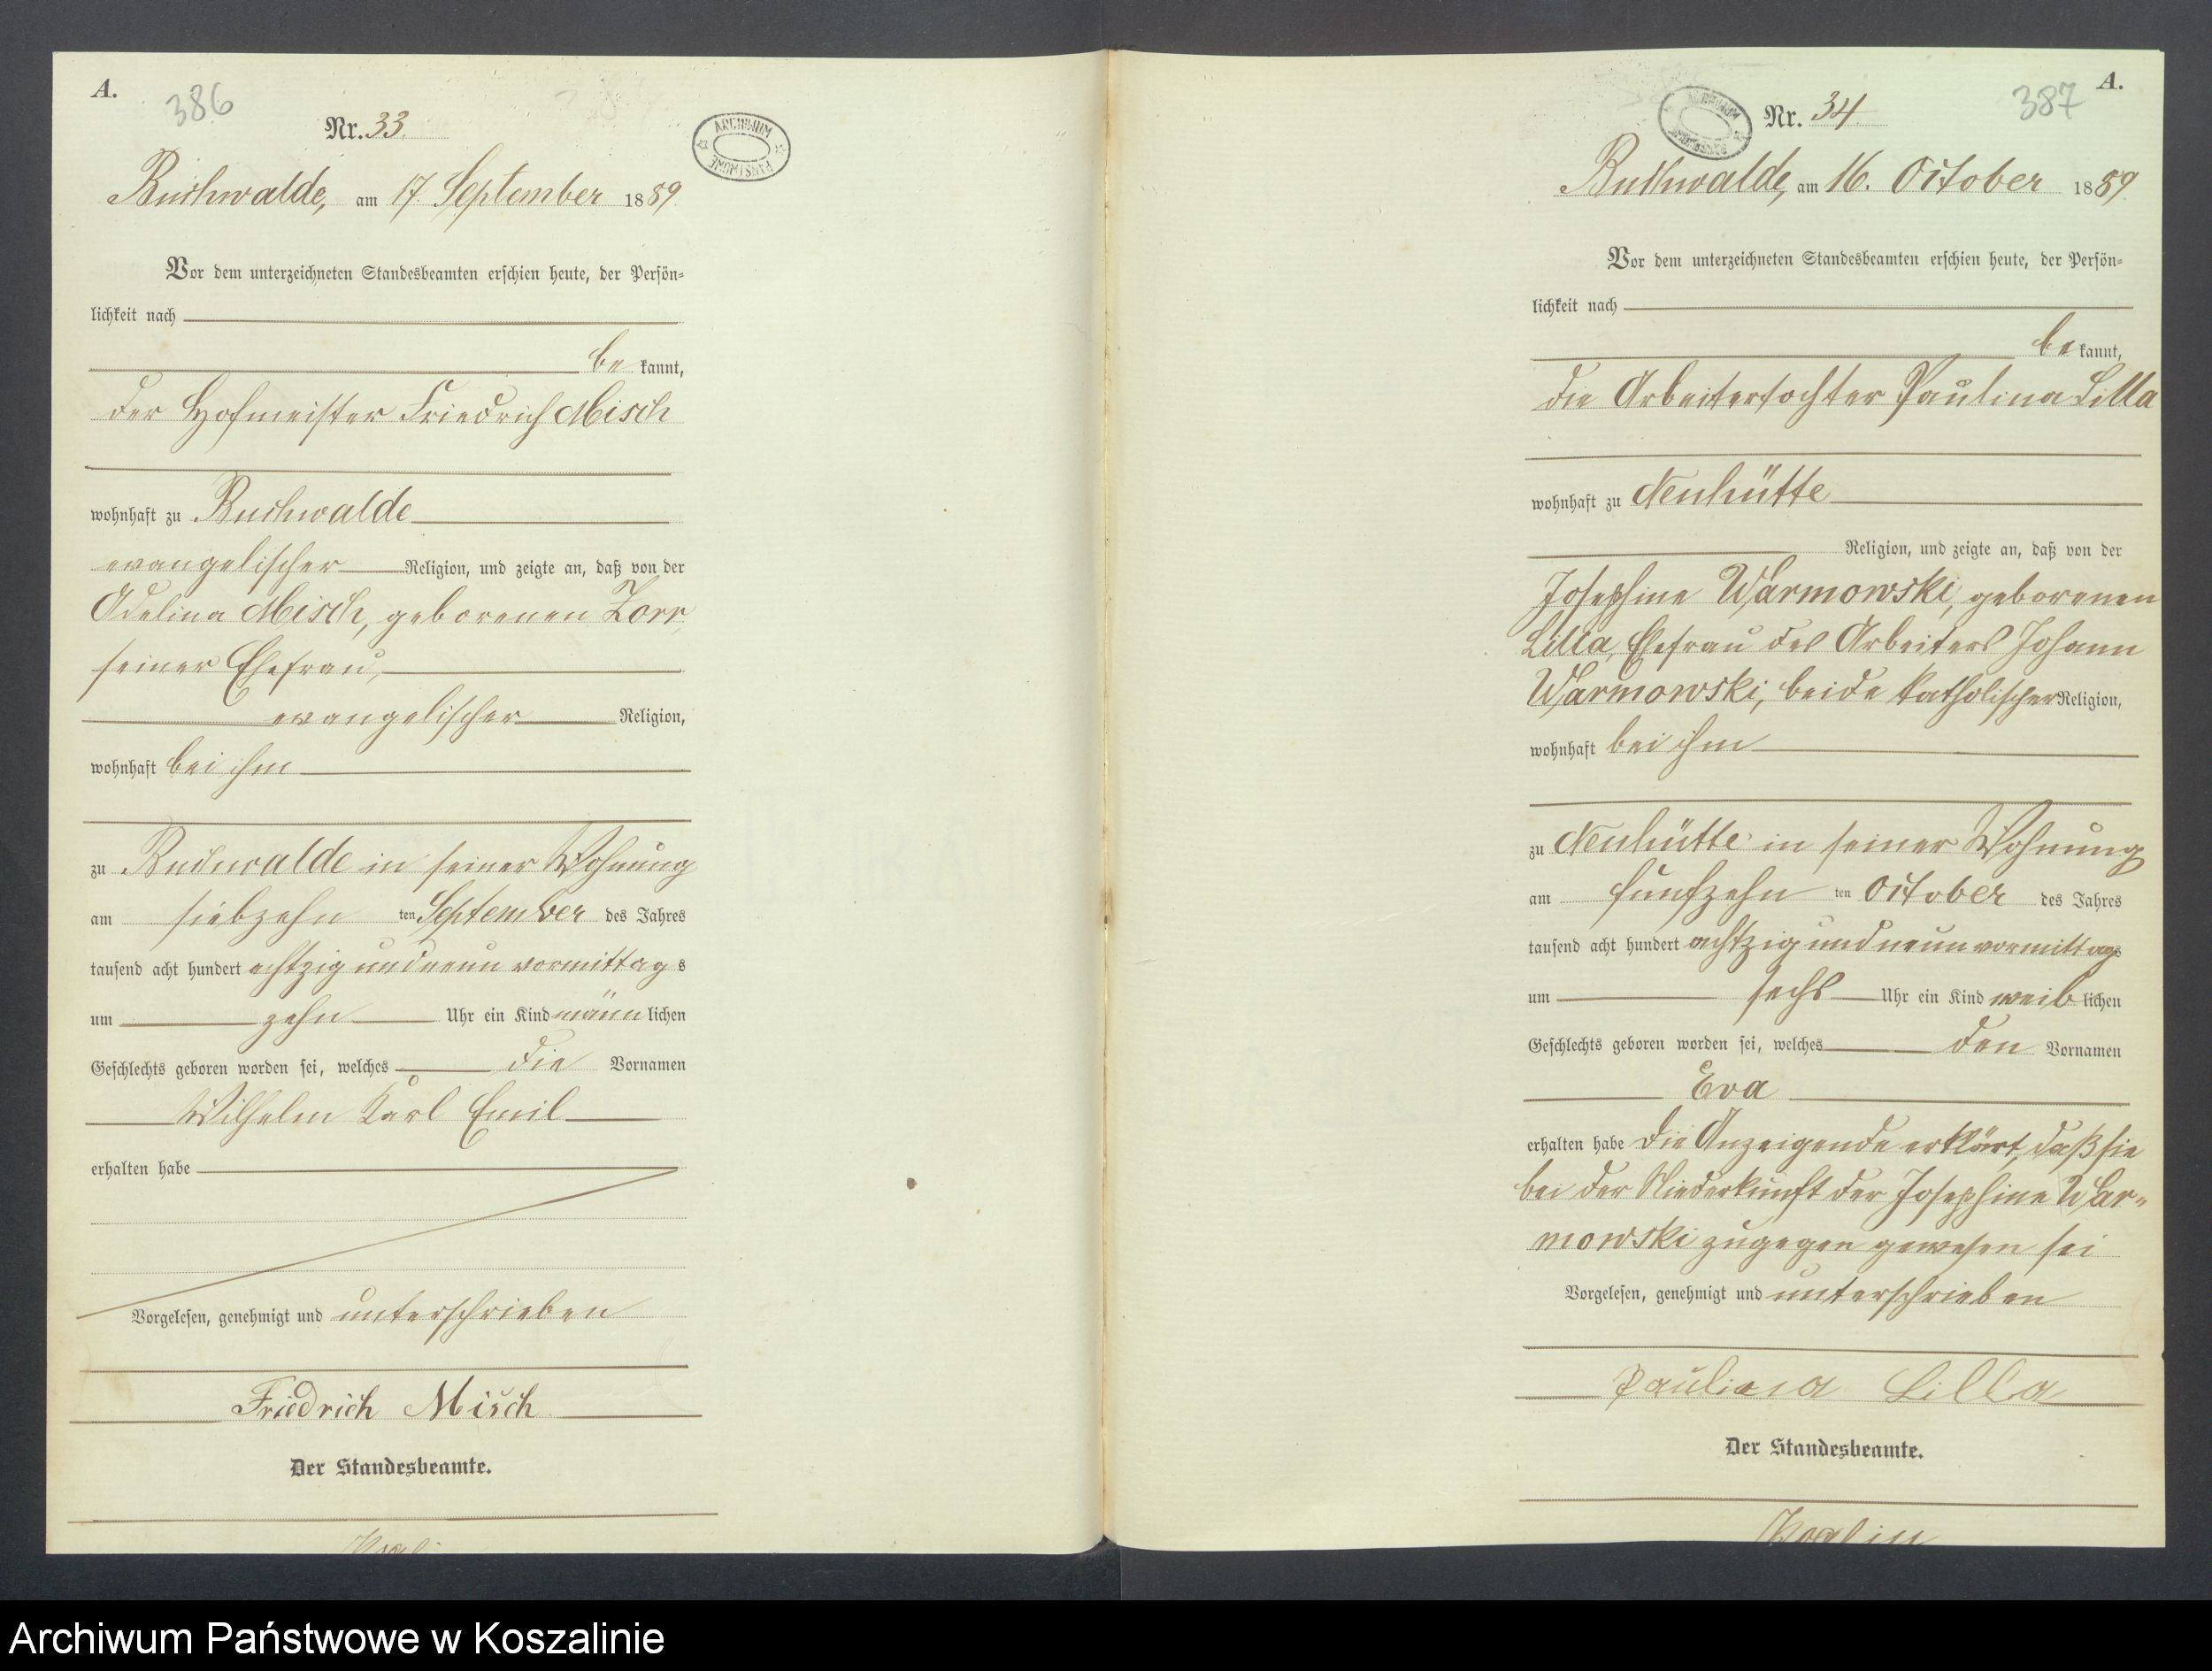 A.
386
Nr. 33.
ARCHIWUM PAŃSTWOWE
Buchwalde, am 17. September 1889.
Vor dem unterzeichneten Standesbeamten erschien heute, der Persön-
lichkeit nach
be kannt,
der Hofmeister Friedrich Misch
wohnhaft zu Buchwalde
evangelischer Religion, und zeigte an, daß von der
Adelina Misch, geborenen Zorr,
seiner Ehefrau,
evangelischer Religion,
wohnhaft bei ihm
zu Buchwalde in seiner Wohnung
am siebzehn ten September des Jahres
tausend acht hundert achtzig und neun vormittag s
um zehn Uhr ein Kind männ lichen
Geschlechts geboren worden sei, welches die Vornamen
Wilhelm Karl Emil
erhalten habe
Vorgelesen, genehmigt und unterschrieben
Friedrich Misch
Der Standesbeamte.
A.
387
Nr. 34
ARCHIWUM PAŃSTWOWE
Buchwalde, am 16. October 1889.
Vor dem unterzeichneten Standesbeamten erschien heute, der Persön-
lichkeit nach
be kannt,
die Arbeitertochter Paulina Lilla
wohnhaft zu Neuhütte
Religion, und zeigte an, daß von der
Josephine Warmowski, geborenen
Lilla, Ehefrau des Arbeiters Johann
Warmowski, beide katholischer Religion,
wohnhaft bei ihm
zu Neuhütte in seiner Wohnung
am fünfzehn ten October des Jahres
tausend acht hundert achtzig und neun vormittags
um sechs Uhr ein Kind weib lichen
Geschlechts geboren worden sei, welches den Vornamen
Eva
erhalten habe Die Anzeigende erklärt, daß sie
bei der Niederkunft der Josephine War-
mowski zugegen gewesen sei
Vorgelesen, genehmigt und unterschrieben
Paulina Lilla
Der Standesbeamte.
Archiwum Państwowe w Koszalinie